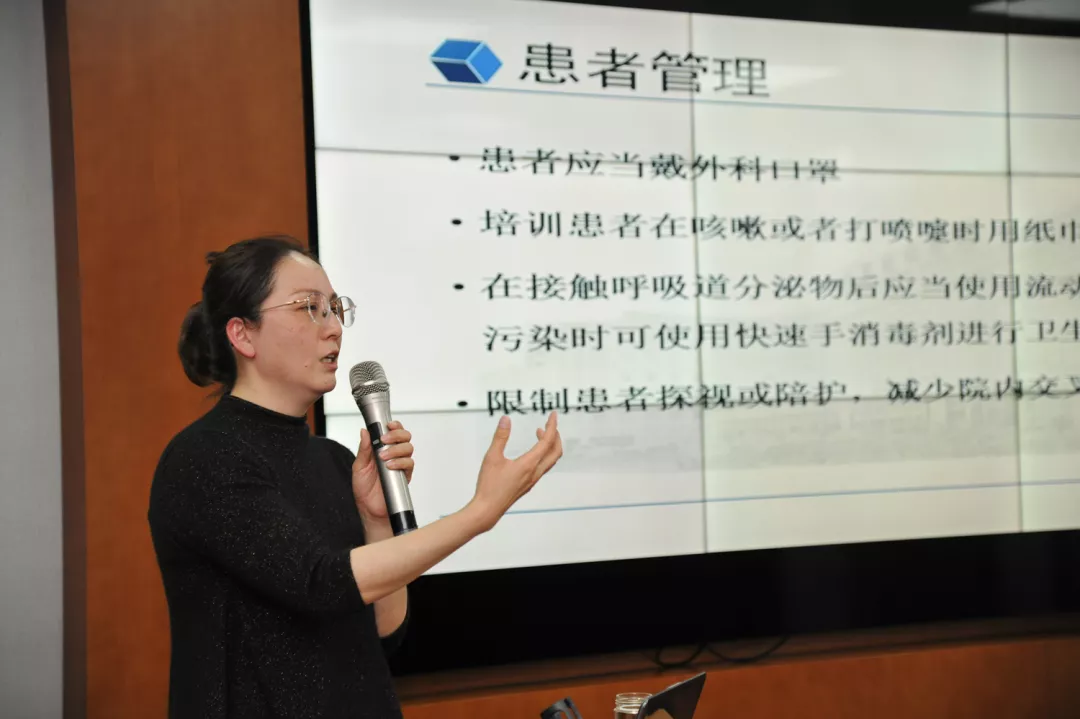 患者管理
• 患者应当戴外科口罩
• 培训患者在咳嗽或者打喷嚏时用纸巾
• 在接触呼吸道分泌物后应当使用流动
污染时可使用快速手消毒剂进行卫生
• 限制患者探视或陪护，减少院内交叉